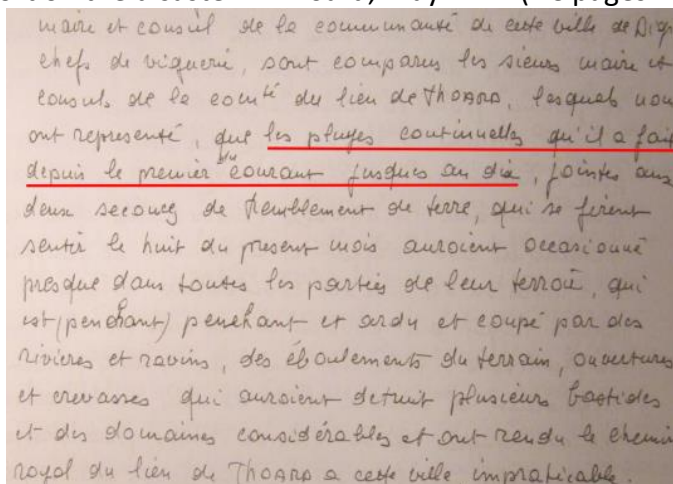 maire et consul de la communauté de cette ville de Dign
chefs de viguerie, sont comparus les sieurs maire et
consuls de la comté du lien de Thoard, lesquels nou
ont representé, que les pluyes continuelles qu'il a fait
depuis le premier du courant jusques au dix, jointes aux
deux secouses de tremblement de terre, qui se firent
sentir le huit du present mois auroient occasionné
presque dans toutes les parties de leur terroir, qui
est (penchant) penchant et ardu et coupé par des
rivières et ravins, des éboulements du terrain, ouvertures
et crevasses qui auroient detruit plusieurs bastides
et des domaines considérables et ont rendu le chemin
royal du lieu de Thoard a cette ville impraticable.